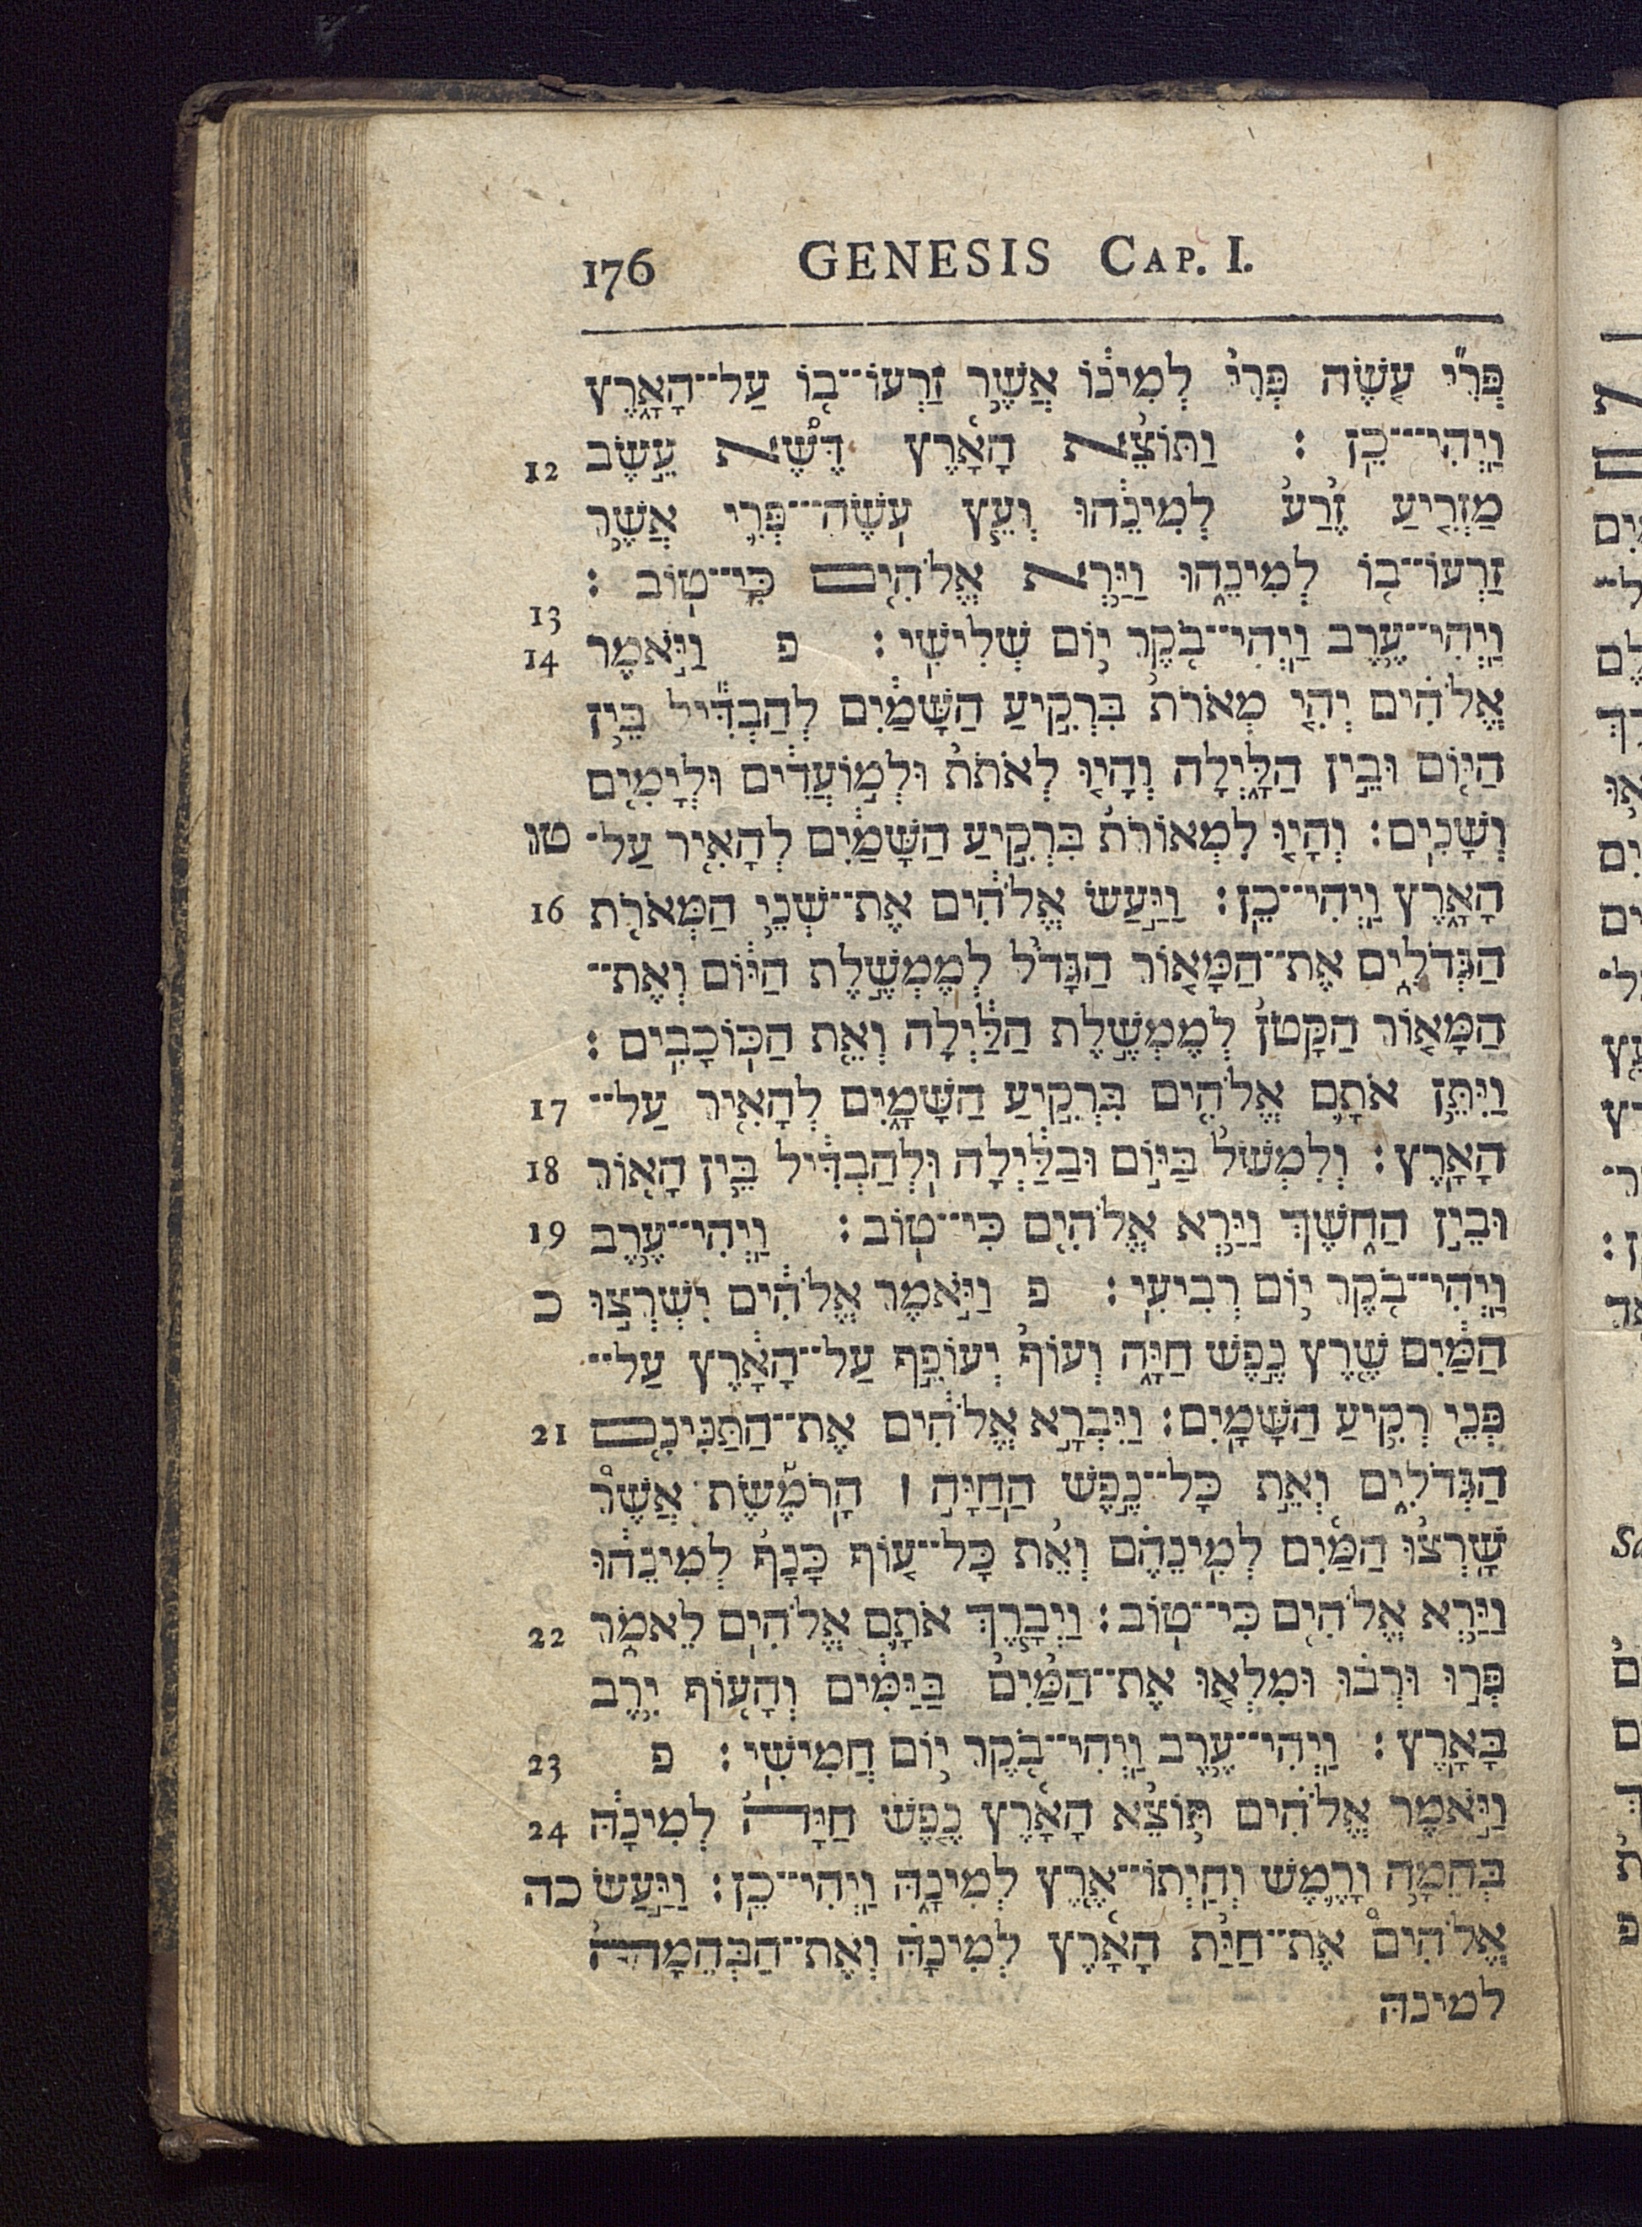 176 GENESIS CAP. I.
פְּרִ֞י עֹ֤שֶׂה פְּרִי֙ לְמִינ֔וֹ אֲשֶׁ֥ר זַרְעוֹ־ב֖וֹ עַל־הָאָ֑רֶץ
12 וַֽיְהִי־כֵֽן׃ וַתּוֹצֵ֨א הָאָ֜רֶץ דֶּ֠שֶׁא עֵ֣שֶׂב
מַזְרִ֤יעַ זֶ֙רַע֙ לְמִינֵ֔הוּ וְעֵ֧ץ עֹֽשֶׂה־פְּרִ֛י אֲשֶׁ֥ר
זַרְעוֹ־ב֖וֹ לְמִינֵ֑הוּ וַיַּ֥רְא אֱלֹהִ֖ים כִּי־טֽוֹב׃
13 14 וַֽיְהִי־עֶ֥רֶב וַֽיְהִי־בֹ֖קֶר י֥וֹם שְׁלִישִֽׁי׃ פ וַיֹּ֣אמֶר
אֱלֹהִ֗ים יְהִ֤י מְאֹרֹת֙ בִּרְקִ֣יעַ הַשָּׁמַ֔יִם לְהַבְדִּ֕יל בֵּ֥ין
הַיּ֖וֹם וּבֵ֣ין הַלָּ֑יְלָה וְהָי֤וּ לְאֹתֹת֙ וּלְמ֣וֹעֲדִ֔ים וּלְיָמִ֖ים
טו וְשָׁנִֽים׃ וְהָי֤וּ לִמְאוֹרֹת֙ בִּרְקִ֣יעַ הַשָּׁמַ֔יִם לְהָאִ֖יר עַל־
16 הָאָ֑רֶץ וַֽיְהִי־כֵֽן׃ וַיַּ֣עַשׂ אֱלֹהִ֔ים אֶת־שְׁנֵ֥י הַמְּאֹרֹ֖ת
הַגְּדֹלִ֑ים אֶת־הַמָּא֤וֹר הַגָּדֹל֙ לְמֶמְשֶׁ֣לֶת הַיּ֔וֹם וְאֶת־
הַמָּא֤וֹר הַקָּטֹן֙ לְמֶמְשֶׁ֣לֶת הַלַּ֔יְלָה וְאֵ֖ת הַכּֽוֹכָבִֽים׃
17 וַיִּתֵּ֥ן אֹתָ֛ם אֱלֹהִ֖ים בִּרְקִ֣יעַ הַשָּׁמָ֑יִם לְהָאִ֖יר עַל־
18 הָאָֽרֶץ׃ וְלִמְשֹׁל֙ בַּיּ֣וֹם וּבַלַּ֔יְלָה וּֽלְהַבְדִּ֔יל בֵּ֥ין הָא֖וֹר
19 וּבֵ֣ין הַחֹ֑שֶׁךְ וַיַּ֥רְא אֱלֹהִ֖ים כִּי־טֽוֹב׃ וַֽיְהִי־עֶ֥רֶב
כ וַֽיְהִי־בֹ֖קֶר י֥וֹם רְבִיעִֽי׃ פ וַיֹּ֣אמֶר אֱלֹהִ֔ים יִשְׁרְצ֣וּ
הַמַּ֔יִם שֶׁ֖רֶץ נֶ֣פֶשׁ חַיָּ֑ה וְעוֹף֙ יְעוֹפֵ֣ף עַל־הָאָ֔רֶץ עַל־
21 פְּנֵ֖י רְקִ֥יעַ הַשָּׁמָֽיִם׃ וַיִּבְרָ֣א אֱלֹהִ֔ים אֶת־הַתַּנִּינִ֖ם
הַגְּדֹלִ֑ים וְאֵ֣ת כָּל־נֶ֣פֶשׁ הַֽחַיָּ֣ה ׀ הָֽרֹמֶ֡שֶׂת אֲשֶׁר֩
שָׁרְצ֨וּ הַמַּ֜יִם לְמִֽינֵהֶ֗ם וְאֵ֨ת כָּל־ע֤וֹף כָּנָף֙ לְמִינֵ֔הוּ
22 וַיַּ֥רְא אֱלֹהִ֖ים כִּי־טֽוֹב׃ וַיְבָ֧רֶךְ אֹתָ֛ם אֱלֹהִ֖ים לֵאמֹ֑ר
פְּר֣וּ וּרְב֗וּ וּמִלְא֤וּ אֶת־הַמַּ֙יִם֙ בַּיַּמִּ֔ים וְהָע֖וֹף יִ֥רֶב
23 בָּאָֽרֶץ׃ וַֽיְהִי־עֶ֥רֶב וַֽיְהִי־בֹ֖קֶר י֥וֹם חֲמִישִֽׁי׃ פ
24 וַיֹּ֣אמֶר אֱלֹהִ֗ים תּוֹצֵ֨א הָאָ֜רֶץ נֶ֤פֶשׁ חַיָּה֙ לְמִינָ֔הּ
כה בְּהֵמָ֥ה וָרֶ֛מֶשׂ וְחַֽיְתוֹ־אֶ֖רֶץ לְמִינָ֑הּ וַֽיְהִי־כֵֽן׃ וַיַּ֣עַשׂ
אֱלֹהִים֩ אֶת־חַיַּ֨ת הָאָ֜רֶץ לְמִינָ֗הּ וְאֶת־הַבְּהֵמָה֙
למינה